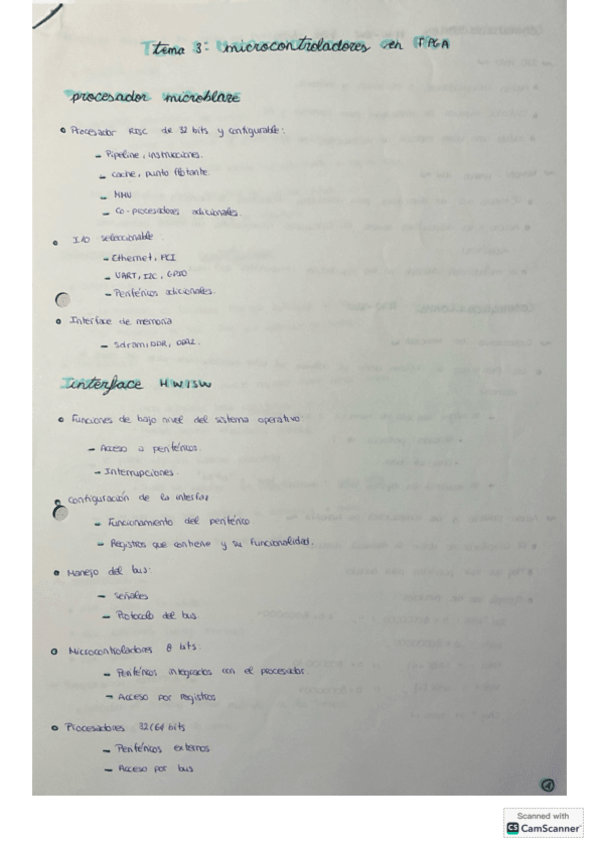 Tema 3: microcontroladores en FPGA
procesador microblaze
• Procesador RISC de 32 bits y configurable:
- Pipeline, instrucciones.
- cache, punto flotante.
- MMU
- Co-procesadores adicionales.
• I/O seleccionable
- Ethernet, PCI
- UART, I2C, GPIO
- Periféricos adicionales.
• Interface de memoria
- Sdram, DDR, DDR2.
Interface HW/SW
• Funciones de bajo nivel del sistema operativo:
- Acceso a periféricos.
- Interrupciones.
• Configuración de la interfaz
- Funcionamento del periférico
- Registros que contiene y su funcionalidad.
• Manejo del bus:
- señales
- Protocolo del bus.
• Microcontroladores 8 bits:
- Periféricos integrados con el procesador.
- Acceso por registros
• Procesadores 32/64 bits
- Periféricos externos
- Acceso por bus
1
Scanned with
CS CamScanner